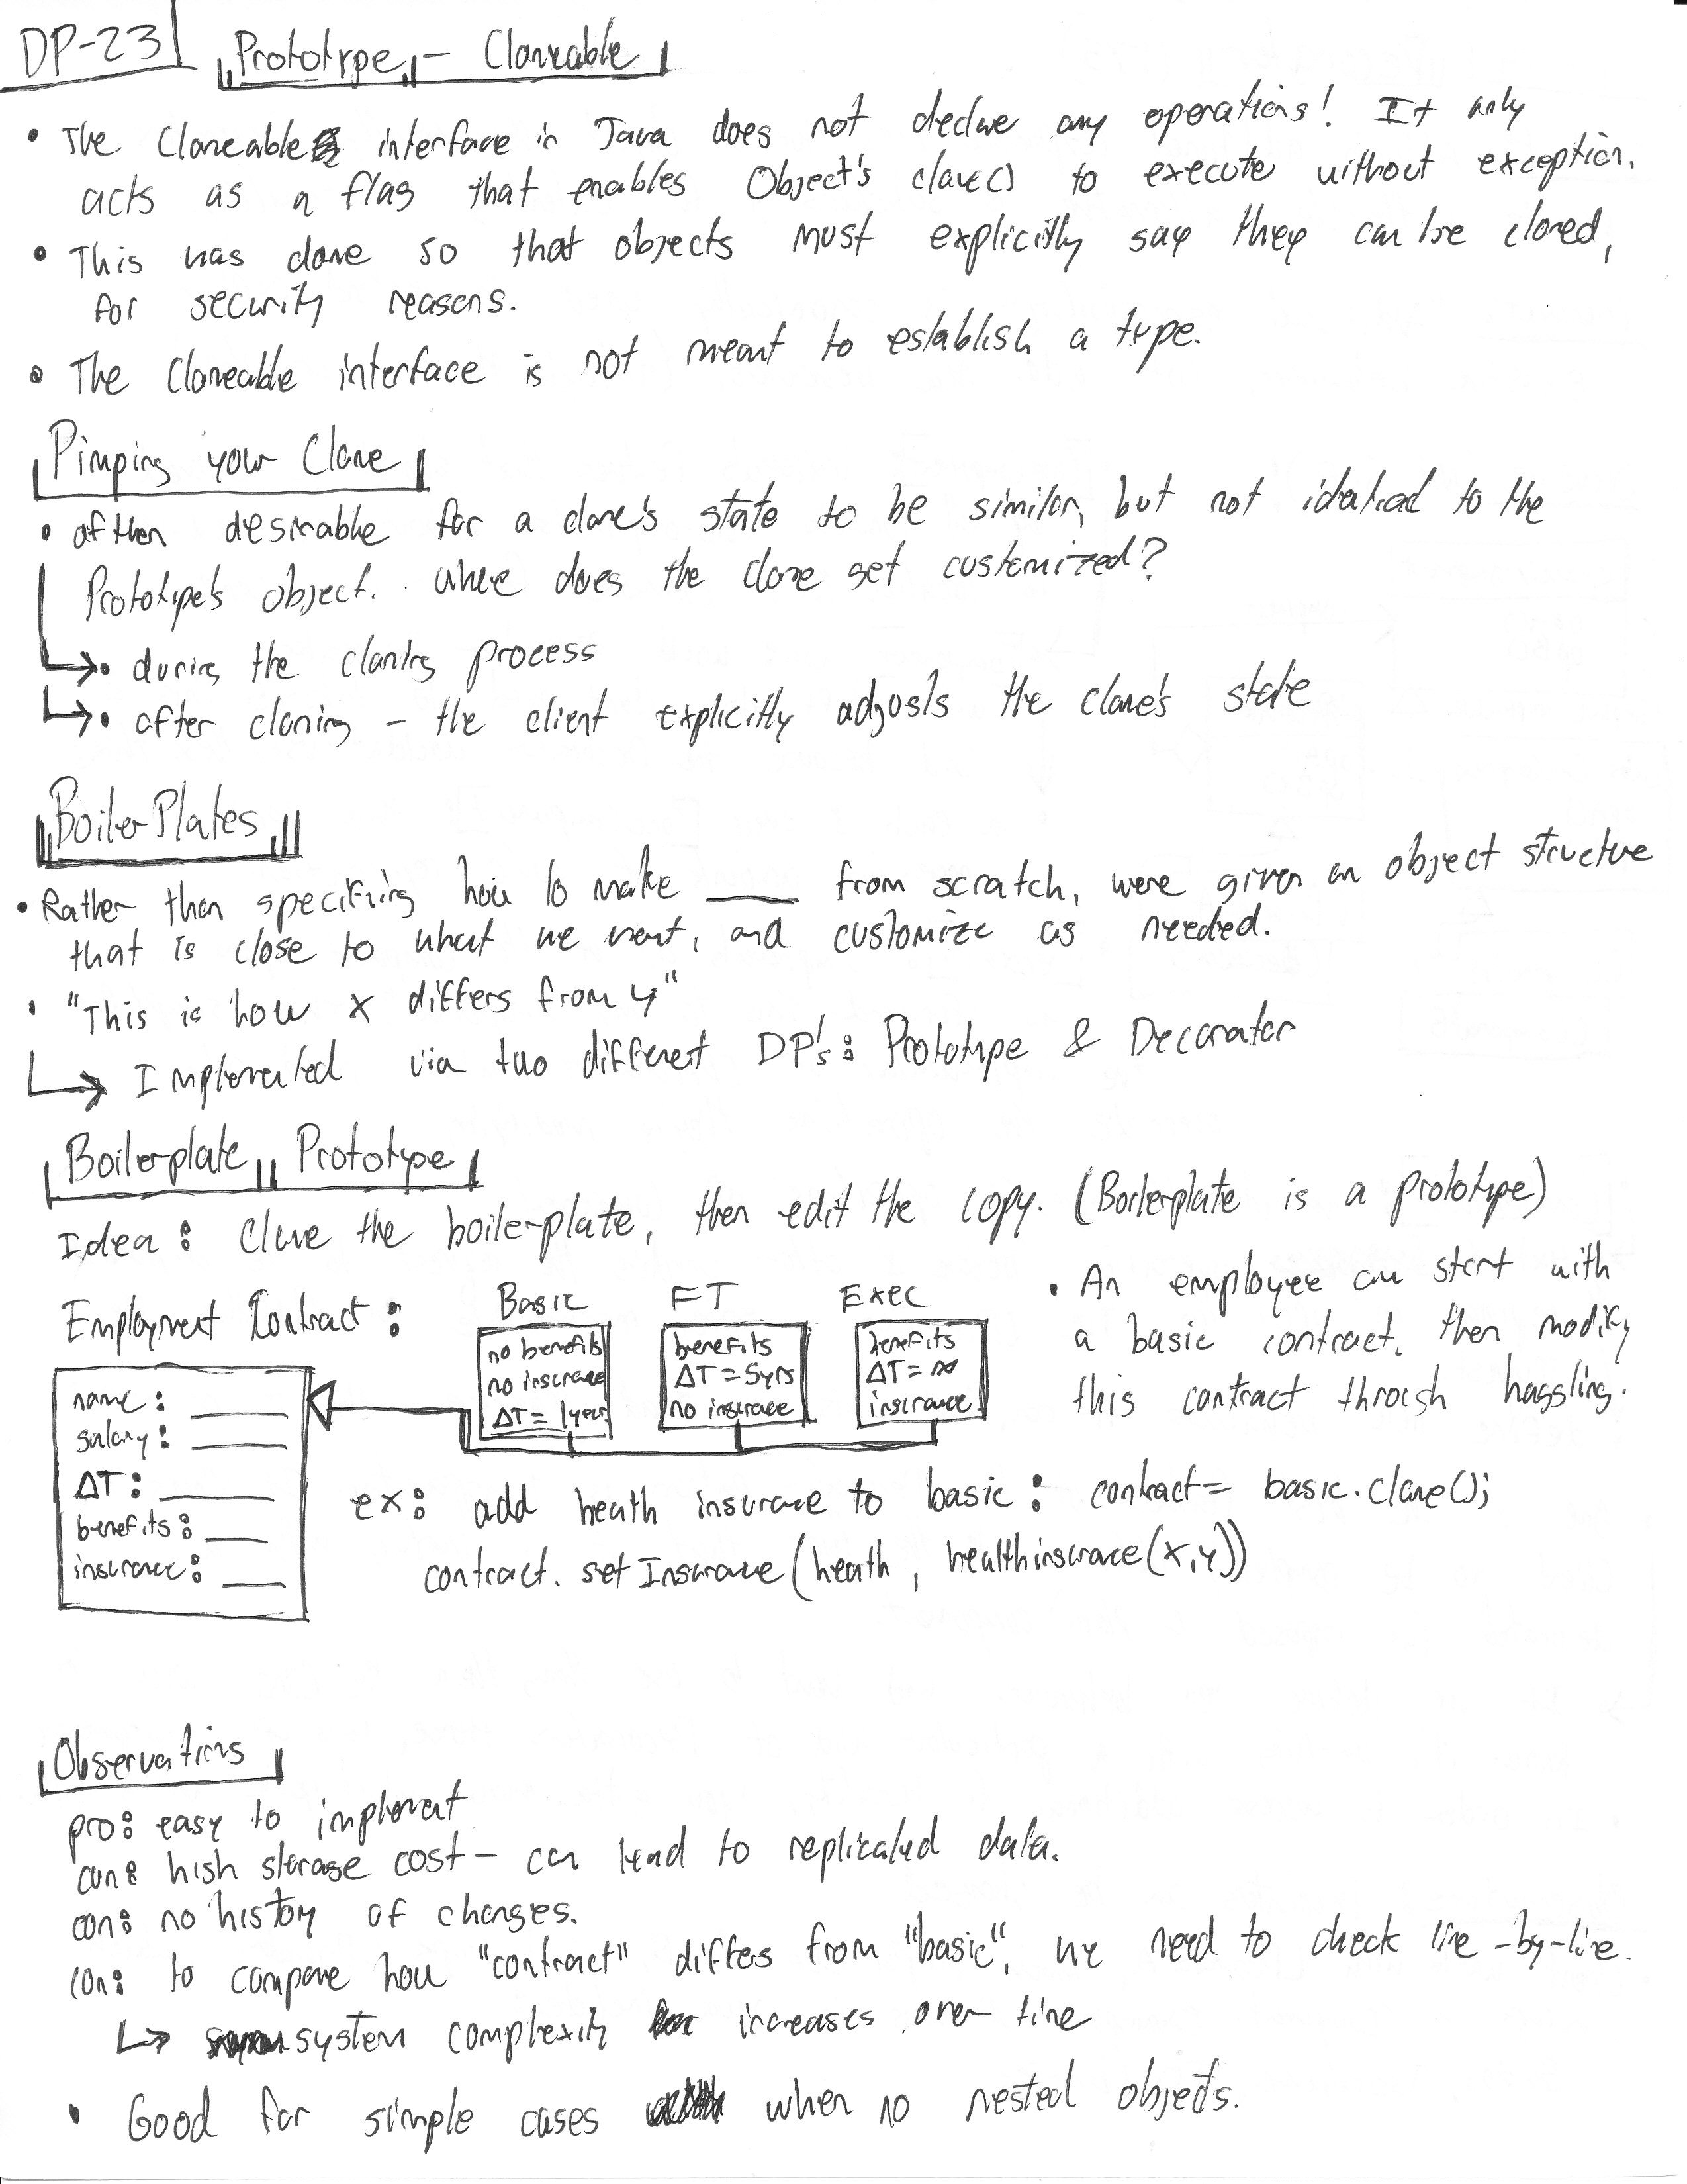 DP-23
Prototype - Cloneable
• The Cloneable interface in Java does not declare any operations! It only
acts as a flag that enables Object's clone() to execute without exception.
• This was done so that objects must explicitly say they can be cloned,
for security reasons.
• The Cloneable interface is not meant to establish a type.
Pimping your Clone
• often desirable for a clone's state to be similar, but not identical to the
Prototype's object. Where does the clone get customized?
↳ • during the cloning process
↳ • after cloning - the client explicitly adjusts the clone's state
BoilerPlates
• Rather than specifying how to make ___ from scratch, were given an object structure
that is close to what we want, and customize as needed.
• "This is how x differs from y"
↳ Implemented via two different DP's: Prototype & Decorator
Boilerplate Prototype
Idea: Clone the boilerplate, then edit the copy. (Boilerplate is a prototype)
Employment Contract:
name: ___
salary: ___
ΔT: ___
benefits: ___
insurance: ___
Basic
no benefits
no insurance
ΔT = 1year
FT
benefits
ΔT = 5yrs
no insurance
Exec
benefits
ΔT = ∞
insurance
• An employee can start with
a basic contract, then modify
this contract through haggling.
ex: add heath insurance to basic: contract = basic.clone();
contract.setInsurance(heath, healthinsurance(x,y))
Observations
pro: easy to implement
con: high storage cost - can lead to replicated data.
con: no history of changes.
con: to compare how "contract" differs from "basic", we need to check line-by-line.
↳ system complexity increases over time
• Good for simple cases when no nested objects.